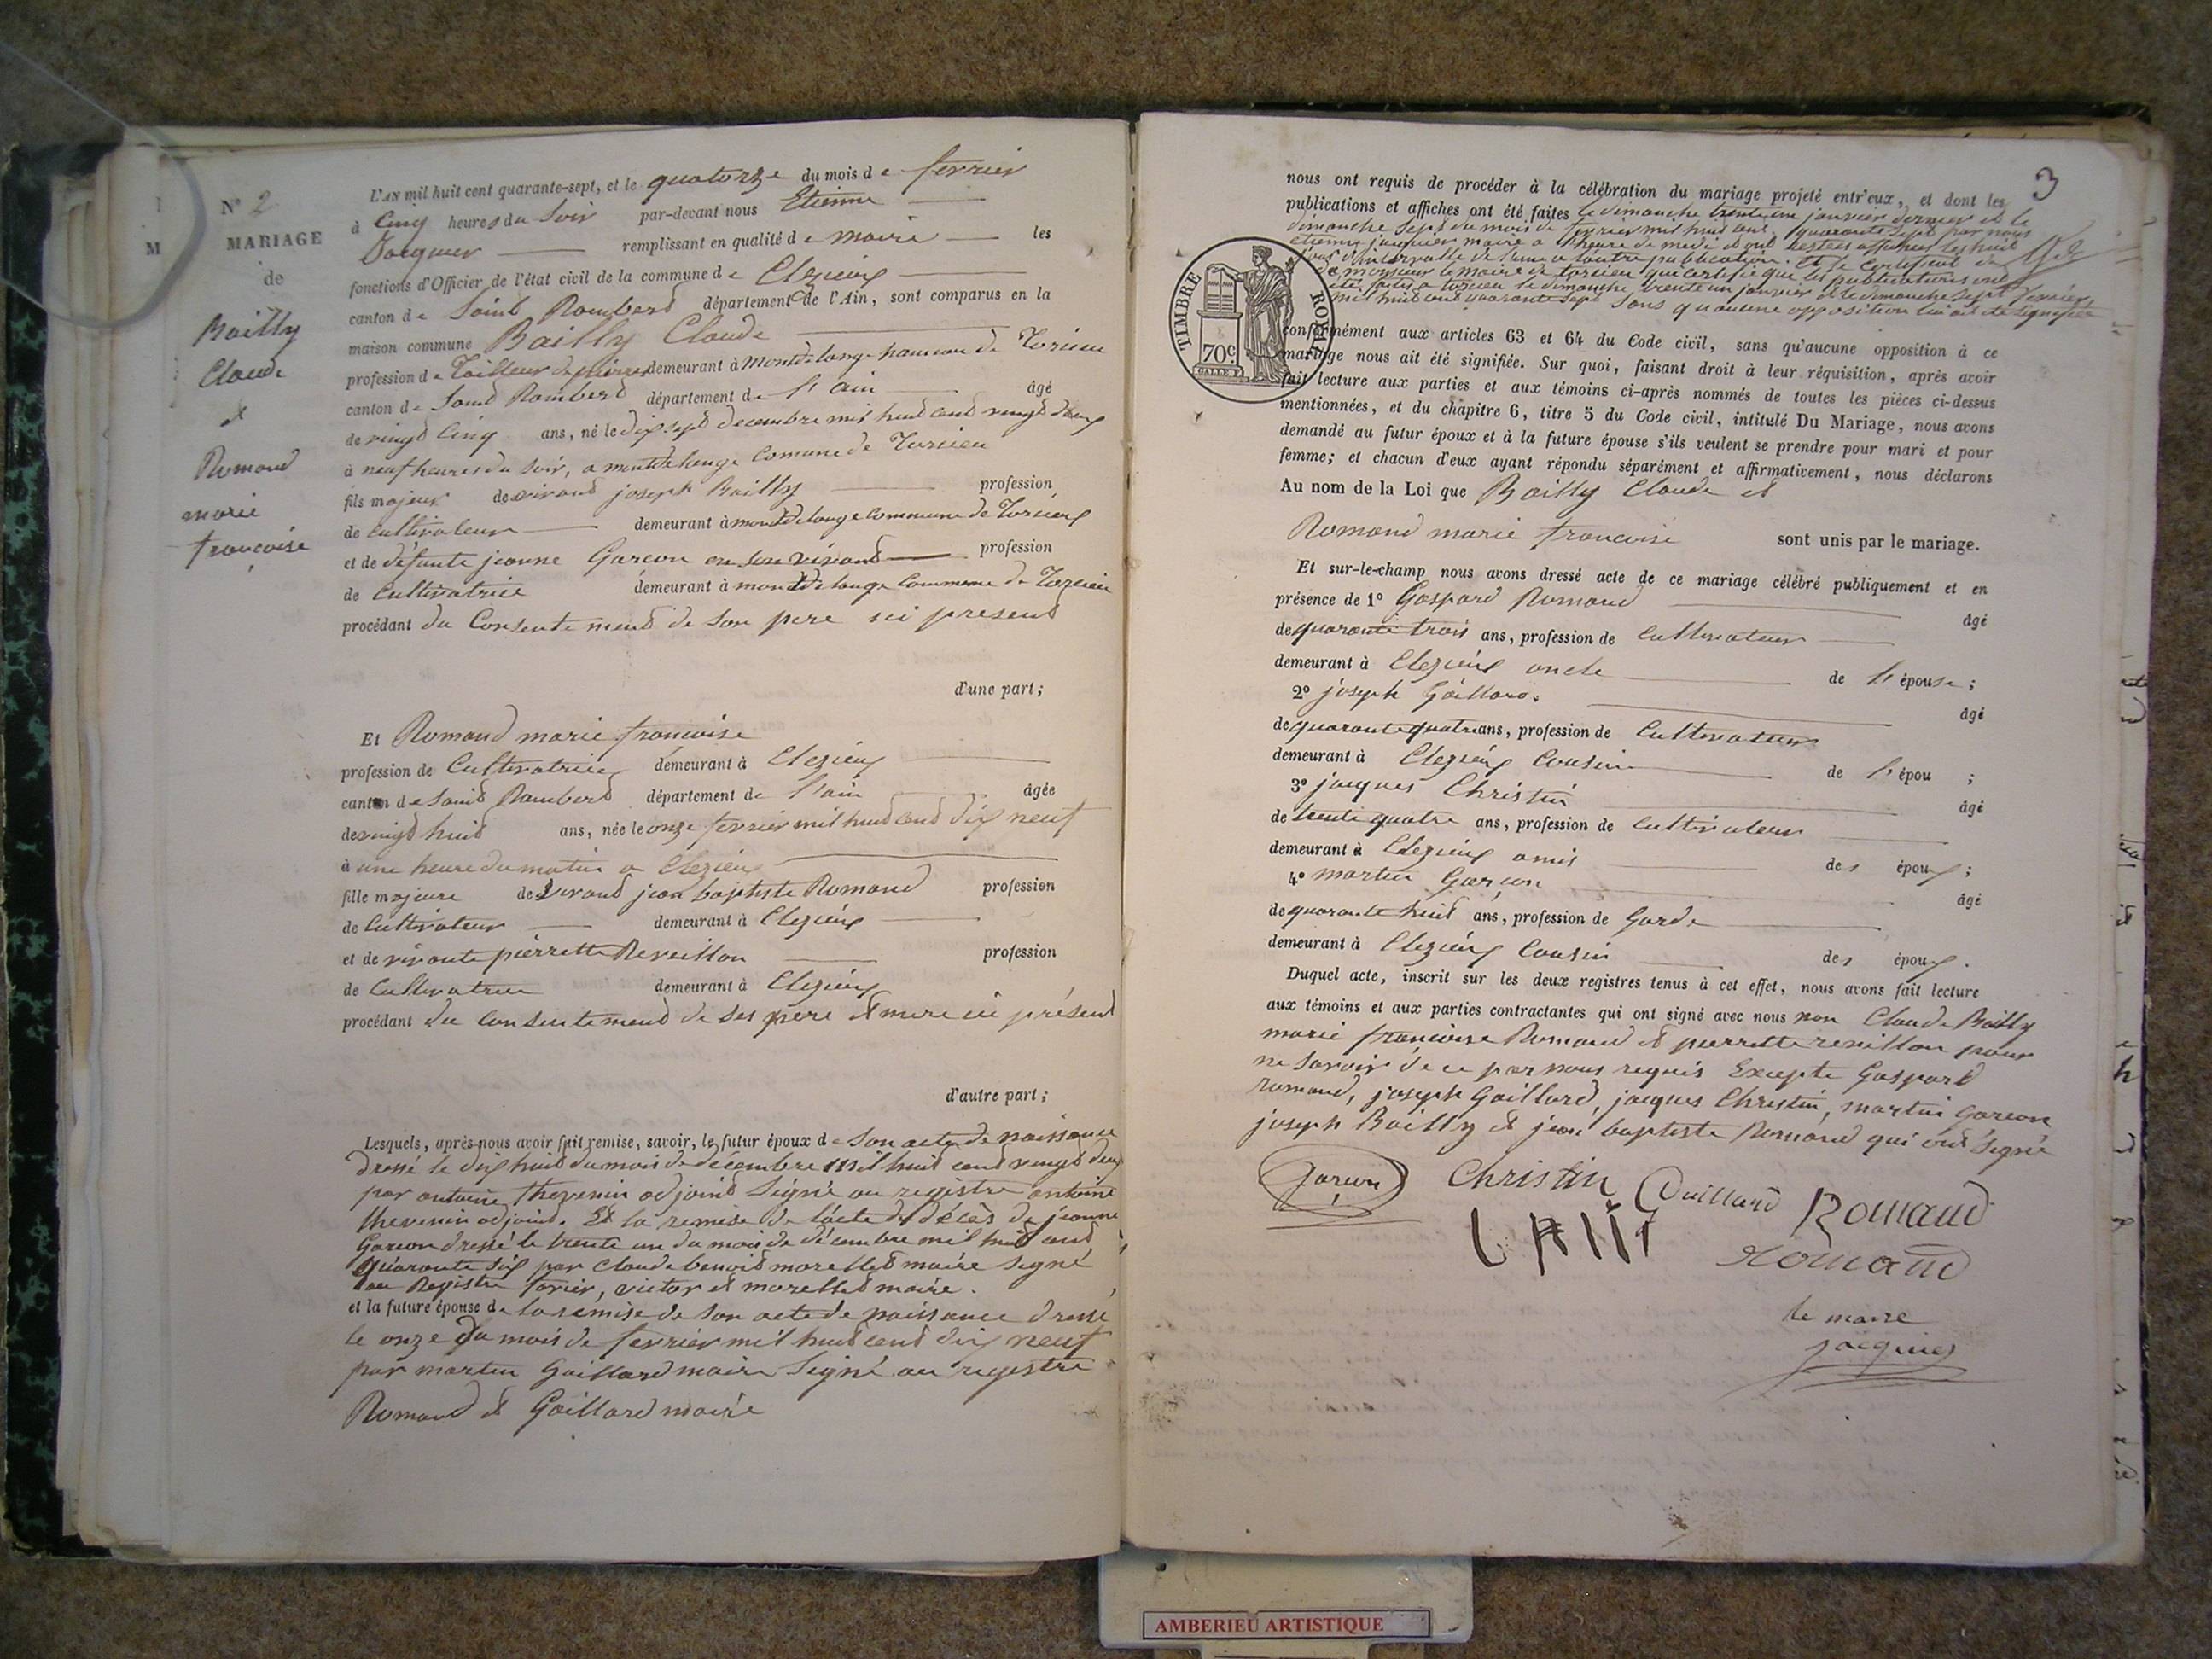 N° 2
MARIAGE
de
Bailly
Claude
et
Romand
marie
francoise
L'AN mil huit cent quarante-sept, et le quatorze du mois de fevrier
à Cinq heures du Soir par-devant nous Etienne
Jacquier remplissant en qualité de maire les
fonctions d'Officier de l'état civil de la commune de Clezieux
canton de Saint Rambert département de l'Ain, sont comparus en la
maison commune Bailly Claude
profession de Tailleur de pierres demeurant à montdelange hameau de Torcieu
canton de Saint Rambert département de l'ain âgé
de vingt Cinq ans, né le dix sept decembre mil huit cent vingt deux
à neuf heures du Soir, a montdelange Comune de Torcieu
fils majeur de vivant joseph Bailly profession
de Cultivateur demeurant à montdelange Commune de Torcieux
et de défunte jeanne Garcon en son vivant profession
de Cultivatrice demeurant à montdelange Commune de Torcieu
procédant du Consentement de son pere ici present
d'une part;
Et Romand marie francoise
profession de Cultivatrice demeurant à Clezieux
canton de Saint Rambert département de l'ain âgée
de vingt huit ans, née le onze fevrier mil huit cent dix neuf
à une heure du matin a Clezieux
fille majeure de vivant jean baptiste Romand profession
de Cultivateur demeurant à Clezieux
et de vivante pierrette Reveillon profession
de Cultivatrice demeurant à Clezieux
procédant du Consentement de ses pere et mere ici présent
d'autre part;
Lesquels, après nous avoir fait remise, savoir, le futur époux de Son acte de naissance
dressé le dix huit du mois de décembre mil huit cent vingt deux
par antoine thevenin adjoint Signé au registre antoine
thevenin adjoint. Et la remise de l'acte de décès de jeanne
Garcon dressé le trente un du mois de décembre mil huit cent
quarante Six par Claude benoit morellet maire Signé
au Registre victor et morellet maire.
et la future épouse de la remise de son acte de naissance dressé
le onze du mois de fevrier mil huit cent dix neuf
par martin Gaillard maire Signé au registre
Romand et Gaillard maire
3
nous ont requis de procéder à la célébration du mariage projeté entr'eux, et dont les
publications et affiches ont été faites le dimanche trente un janvier dernier et le
dimanche Sept du mois de fevrier mil huit cent quarante Sept par nous
etienne jacquier maire a l'heure de midi et ont restées affichées les huit
jours d'intervalle de l'une a l'autre publication. Et le Certificat de
de monsieur le maire de torcieu qui certifie que les publications ont
été faites a torcieu le dimanche trente un janvier et le dimanche Sept fevrier
mil huit cent quarante Sept Sans qu'aucune opposition lui ait été Signifiée
TIMBRE ROYAL
70c
conformément aux articles 63 et 64 du Code civil, sans qu'aucune opposition à ce
mariage nous ait été signifiée. Sur quoi, faisant droit à leur réquisition, après avoir
fait lecture aux parties et aux témoins ci-après nommés de toutes les pièces ci-dessus
mentionnées, et du chapitre 6, titre 5 du Code civil, intitulé Du Mariage, nous avons
demandé au futur époux et à la future épouse s'ils veulent se prendre pour mari et pour
femme; et chacun d'eux ayant répondu séparément et affirmativement, nous déclarons
Au nom de la Loi que Bailly Claude et
Romand marie francoise sont unis par le mariage.
Et sur-le-champ nous avons dressé acte de ce mariage célébré publiquement et en
présence de 1° Gaspard Romand âgé
de quarante trois ans, profession de Cultivateur
demeurant à Clezieux oncle de l'épouse;
2° joseph Gaillard. âgé
de quarante quatre ans, profession de Cultivateur
demeurant à Clezieux Cousin de l'épou ;
3° jacques Christin âgé
de trente quatre ans, profession de Cultivateur
demeurant à Clezieux amis des époux;
4° martin Garcon âgé
de quarante huit ans, profession de Garde
demeurant à Clezieux Cousin des époux.
Duquel acte, inscrit sur les deux registres tenus à cet effet, nous avons fait lecture
aux témoins et aux parties contractantes qui ont signé avec nous non Claude Bailly
marie francoise Romand et pierrette revillon pour
ne Savoir de ce par nous requis Excepte Gaspard
romand, joseph Gaillard, jacques Christin, martin Garcon
joseph Bailly et jean baptiste Romand qui ont Signé
Garcon Christin Gaillard Romand
Romand
le maire
jacquier
AMBERIEU ARTISTIQUE